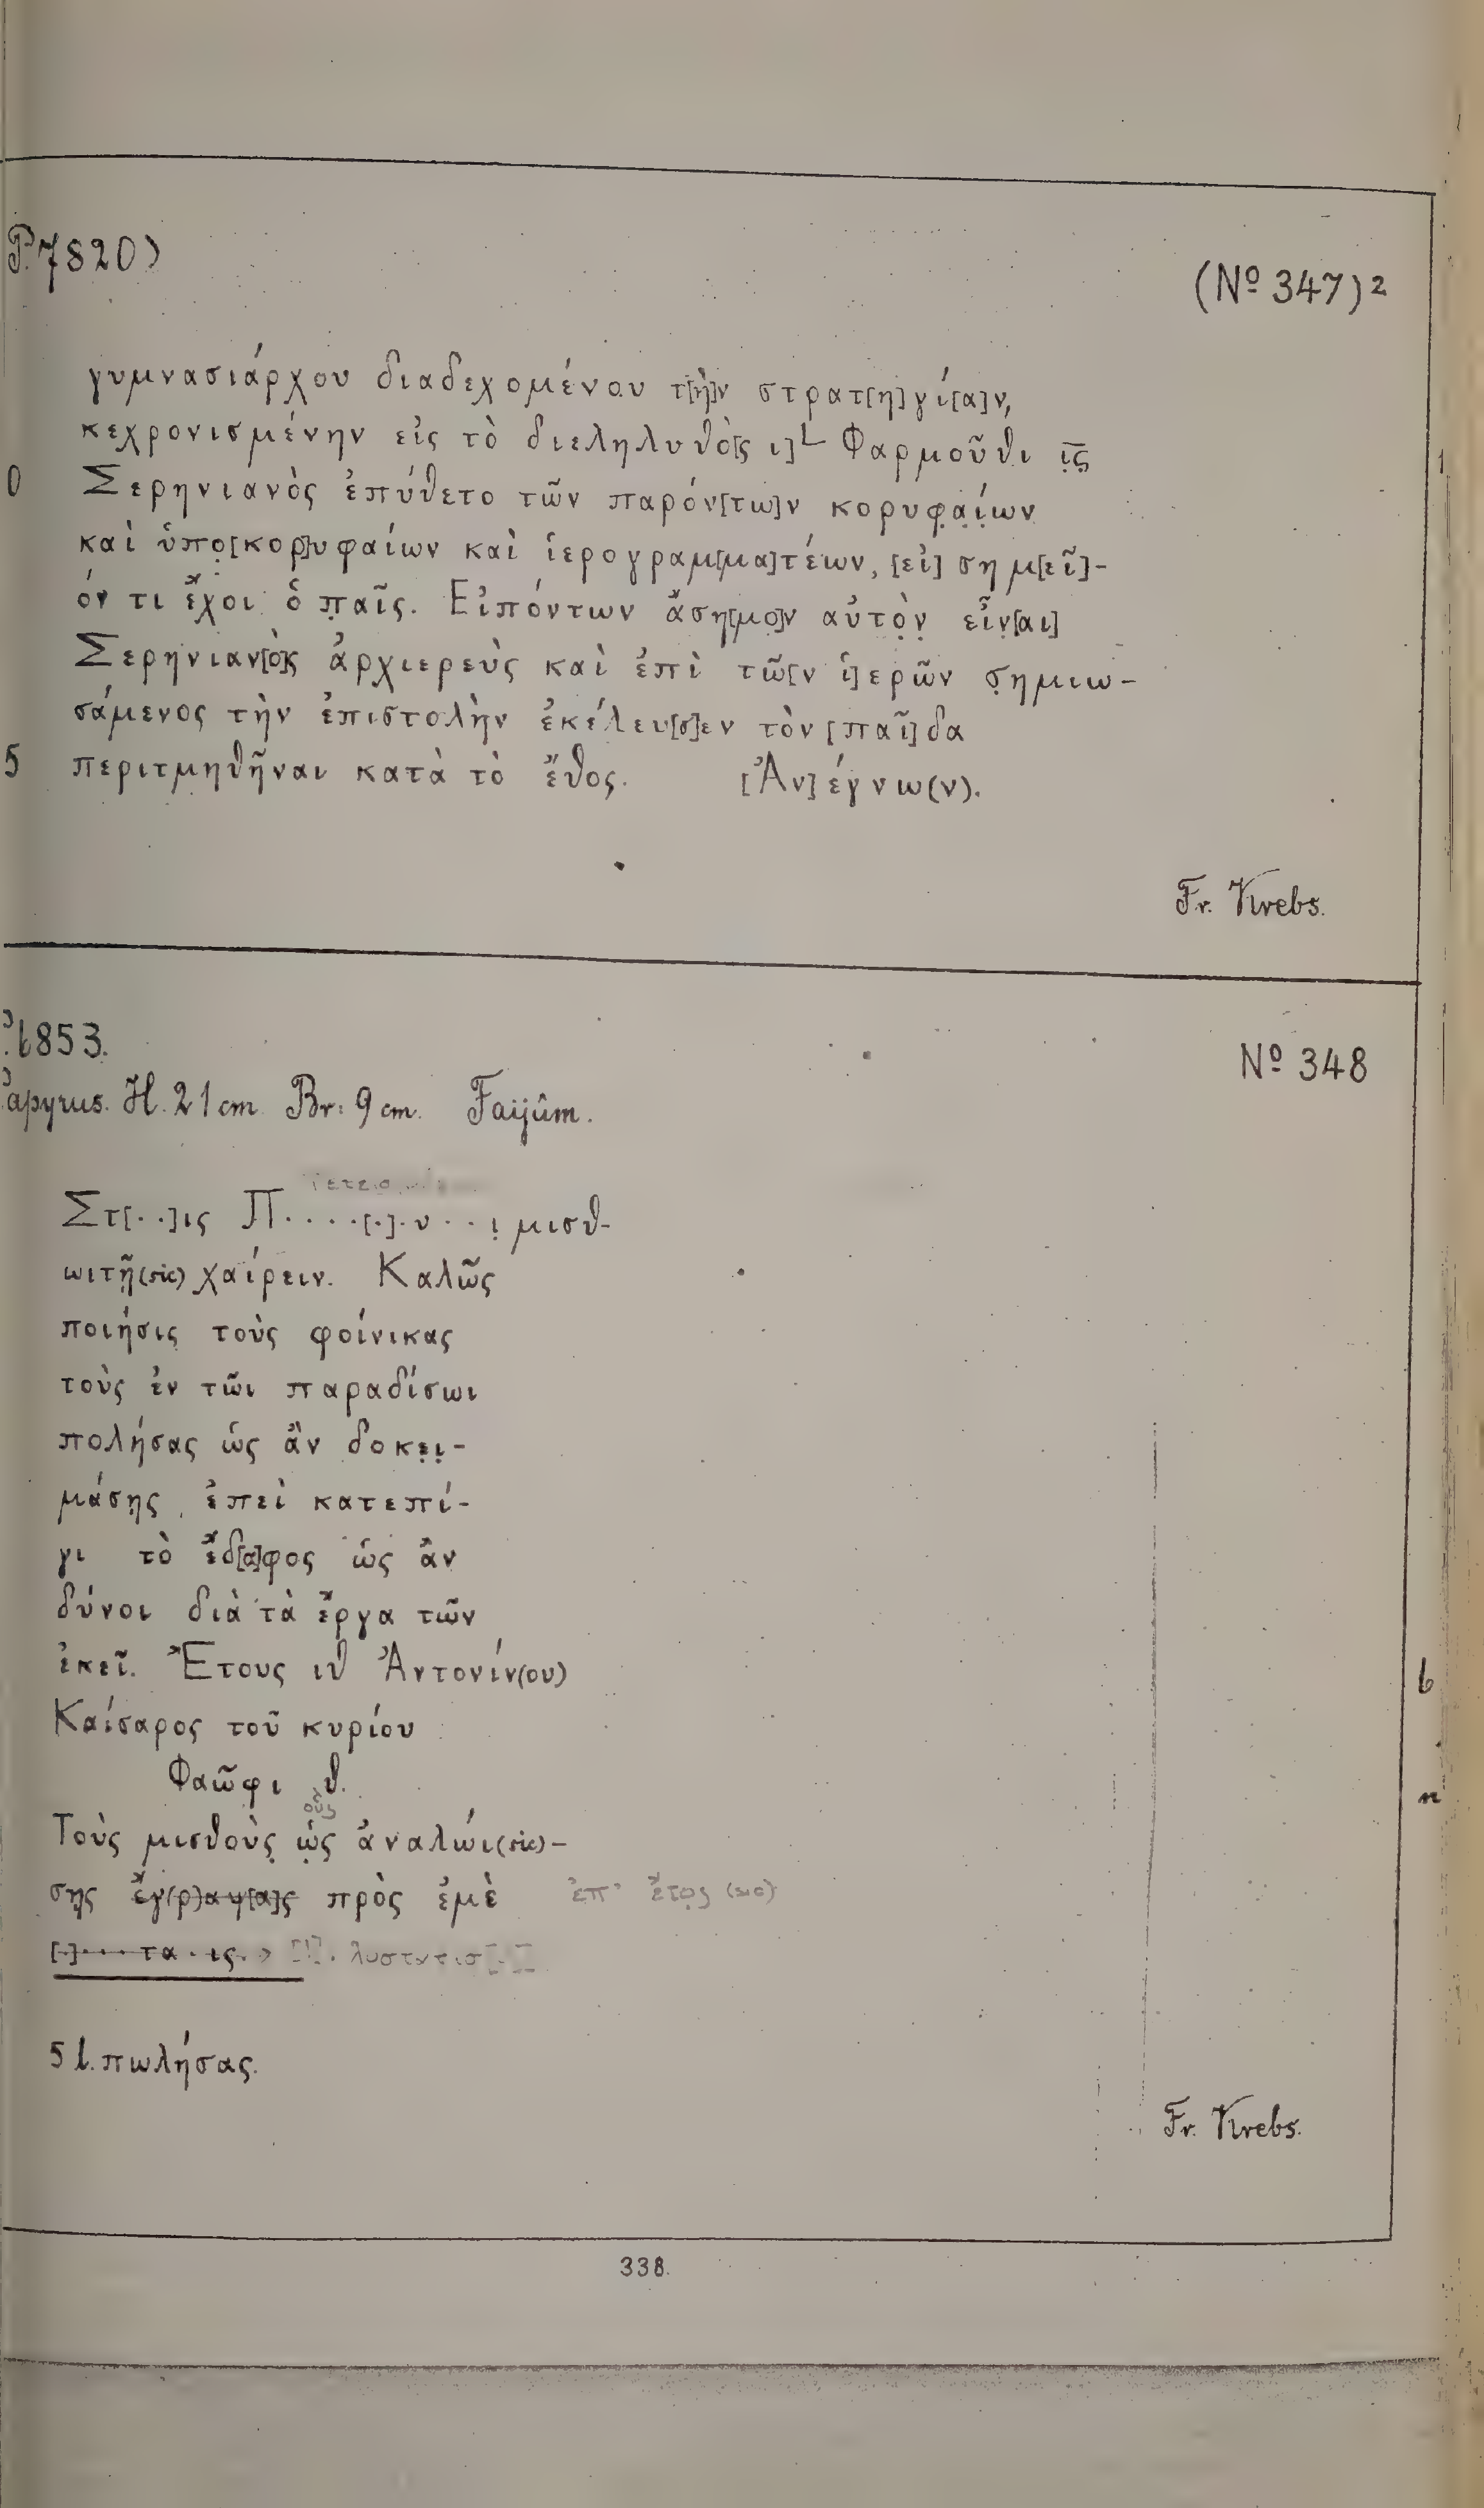 P. 7820)
(Nº 347)²
γυμνασιάρχου διαδεχομένου τ[ὴ]ν στρατ[η]γί[α]ν,
κεχρονισμένην εἰς τὸ διεληλυθὸ[ς ι]L Φαρμοῦθι ῑς̄
0 Σερηνιανὸς ἐπύθετο τῶν παρόν[τω]ν κορυφα̣ί̣ων
καὶ ὑπο̣[κορ]υφαίων καὶ ἱερογραμ[μα]τέων, [εἰ] σημ[εῖ]-
όν τι ἔχοι ὁ π̣αῖς. Εἰπόντων ἄση[μο]ν αὐτὸ̣ν̣ εἶν̣[αι]
Σερηνιαν[ὸ]ς ἀρχιερεὺς καὶ ἐπὶ τῶ[ν ἱ]ερῶν σ̣ημιω-
σάμενος τὴν ἐπιστολὴν ἐκέλευ[σ]εν τὸν [παῖ]δα
5 περιτμηθῆναι κατὰ τὸ ἔθος. [Ἀν]έγνω(ν).
Fr. Krebs.
1853.
Nº 348
apyrus. H. 21 cm. Br: 9 cm. Faijûm.
Στ[··]ις Π····[·]·υ··ι̣ μισθ-
ωιτῇ(sic) χαίρειν. Καλῶς
ποιήσις τοὺς φοίνικας
τοὺς ἐν τῶι παραδίσωι
πολήσας ὡς ἂν δοκε̣ι̣-
μάσῃς, ἐπεὶ κατεπί-
γι τὸ ἔδ[α]φος ὡς ἂν
δύνοι διὰ τὰ ἔργα τῶν
ἐκεῖ. Ἔτους ιθ Ἀντονίν(ου)
Καίσαρος τοῦ κυρίου
Φαῶφι θ.
οὓς
Τοὺς μισθοὺς ὡ̣ς ἀναλώι(sic)-
σῃς ἔγ(ρ)αψ[α]ς πρὸς ἐμὲ ἐπ' ἔτο̣ς (sic)
[·]····τα·ις.
5 l. πωλήσας.
Fr. Krebs.
338.